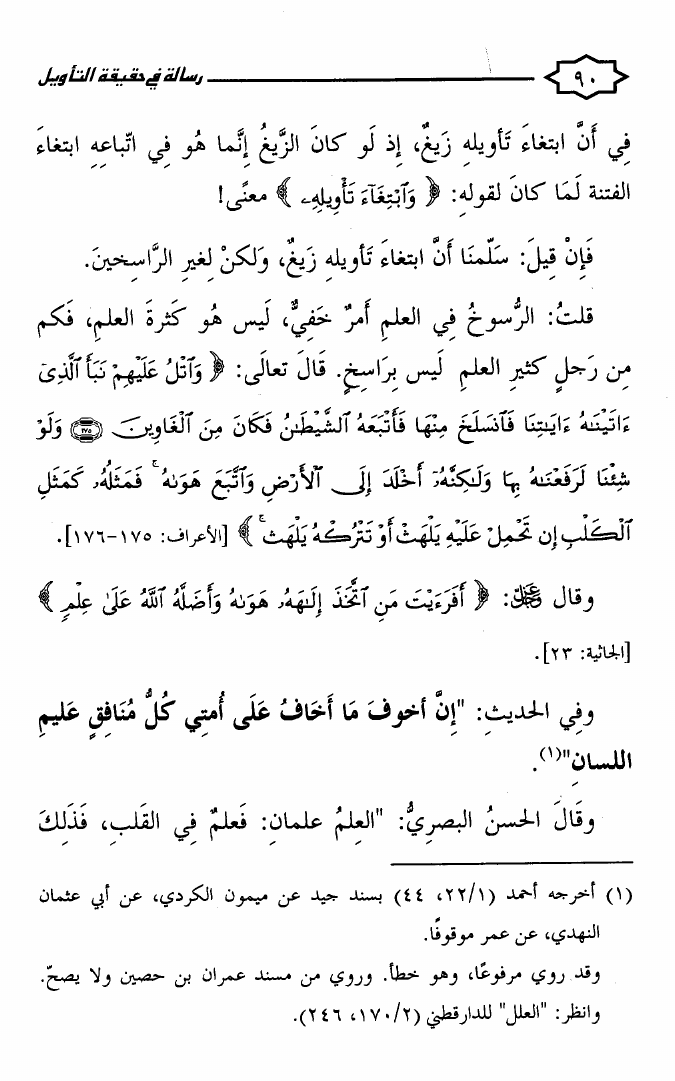 ٩٠ رسالة في حقيقة التأويل
في أَنَّ ابتغاءَ تَأويلهِ زَيغٌ، إِذ لَو كانَ الزَّيغُ إِنَّما هُو فِي اتّباعِهِ ابتغاءَ
الفتنة لَمَا كانَ لقولهِ: ﴿ وَٱبْتِغَآءَ تَأْوِيلِهِۦ ﴾ معنًى!
فَإِنْ قِيلَ: سَلّمنَا أَنَّ ابتغاءَ تَأويلهِ زَيغٌ، وَلكنْ لِغيرِ الرَّاسخينَ.
قلتُ: الرُّسوخُ فِي العلمِ أَمرٌ خَفيٌّ، لَيس هُو كَثرةَ العلمِ، فَكم
مِن رَجلٍ كثيرِ العلمِ لَيس بِرَاسخٍ. قَالَ تعالَى: ﴿ وَٱتْلُ عَلَيْهِمْ نَبَأَ ٱلَّذِىٓ
ءَاتَيْنَٰهُ ءَايَٰتِنَا فَٱنسَلَخَ مِنْهَا فَأَتْبَعَهُ ٱلشَّيْطَٰنُ فَكَانَ مِنَ ٱلْغَاوِينَ ١٧٥ وَلَوْ
شِئْنَا لَرَفَعْنَٰهُ بِهَا وَلَٰكِنَّهُۥٓ أَخْلَدَ إِلَى ٱلْأَرْضِ وَٱتَّبَعَ هَوَىٰهُ ۚ فَمَثَلُهُۥ كَمَثَلِ
ٱلْكَلْبِ إِن تَحْمِلْ عَلَيْهِ يَلْهَثْ أَوْ تَتْرُكْهُ يَلْهَث ۚ ﴾ [الأعراف: ١٧٥-١٧٦].
وقال عَزَّوَجَلَّ: ﴿ أَفَرَءَيْتَ مَنِ ٱتَّخَذَ إِلَٰهَهُۥ هَوَىٰهُ وَأَضَلَّهُ ٱللَّهُ عَلَىٰ عِلْمٍ ﴾
[الجاثية: ٢٣].
وفِي الحديثِ: "إِنَّ أَخوفَ مَا أَخَافُ عَلَى أُمتِي كُلُّ مُنَافِقٍ عَليمِ
اللسانِ"(١).
وقَالَ الحسنُ البصرِيُّ: "العِلمُ علمانِ: فَعلمٌ فِي القَلبِ، فَذَلِكَ
(١) أخرجه أحمد (٢٢/١، ٤٤) بسند جيد عن ميمون الكردي، عن أبي عثمان
النهدي، عن عمر موقوفًا.
وقد روي مرفوعًا، وهو خطأ. وروي من مسند عمران بن حصين ولا يصحّ.
وانظر: "العلل" للدارقطني (١٧٠/٢، ٢٤٦).